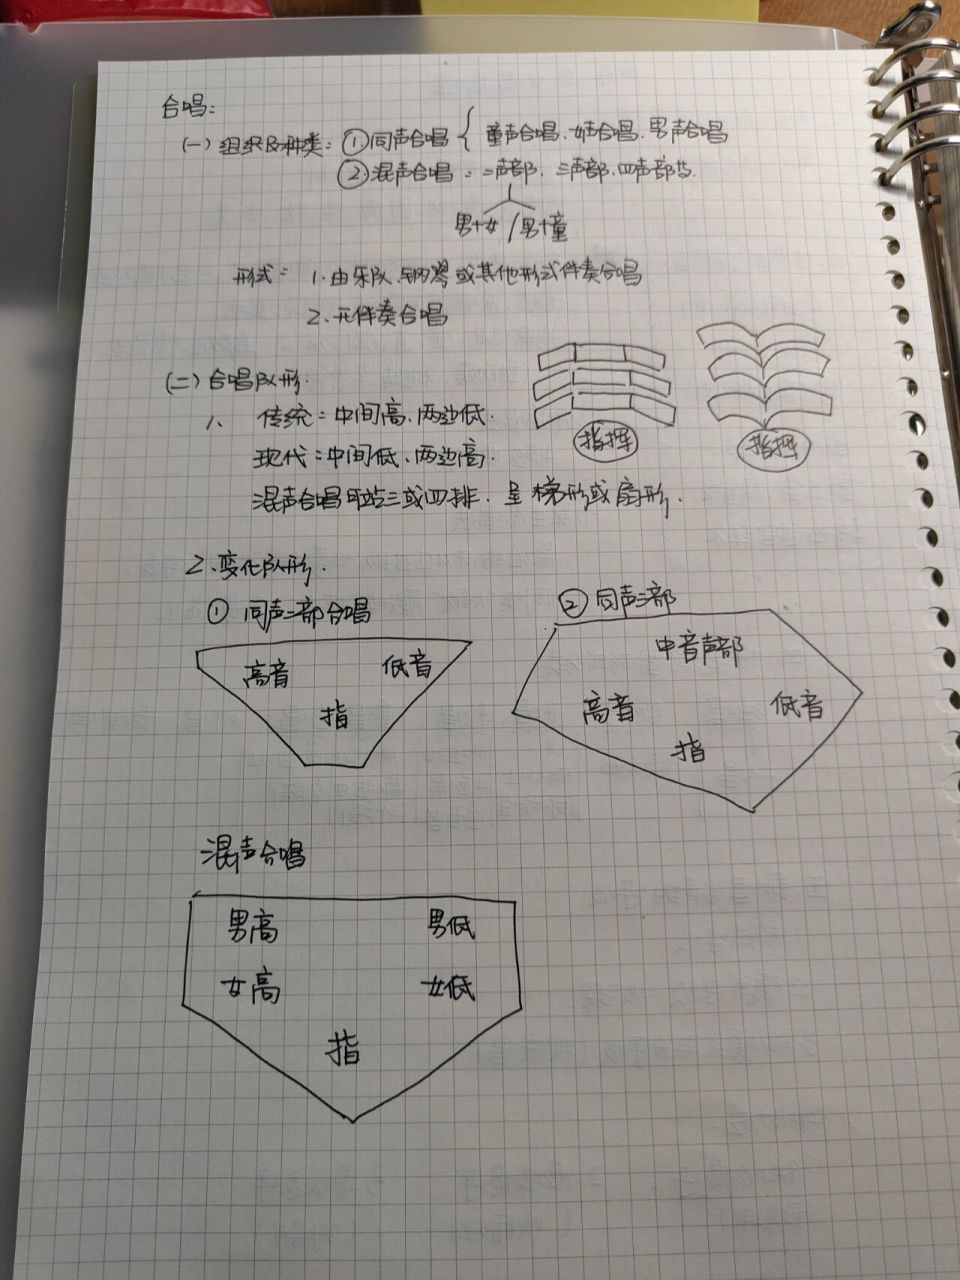 合唱：
(一) 组织及种类：①同声合唱 { 童声合唱、女声合唱、男声合唱
②混声合唱：二声部、三声部、四声部等.
男+女 / 男+童
形式： 1.由乐队、钢琴或其他形式伴奏合唱
2、无伴奏合唱
(二) 合唱队形.
1、 传统：中间高、两边低.
现代：中间低、两边高.
指挥 指挥
混声合唱可站三或四排. 呈梯形或扇形.
2.变化队形.
① 同声二部合唱
② 同声三部
高音 低音
指
中音声部
高音 低音
指
混声合唱
男高 男低
女高 女低
指